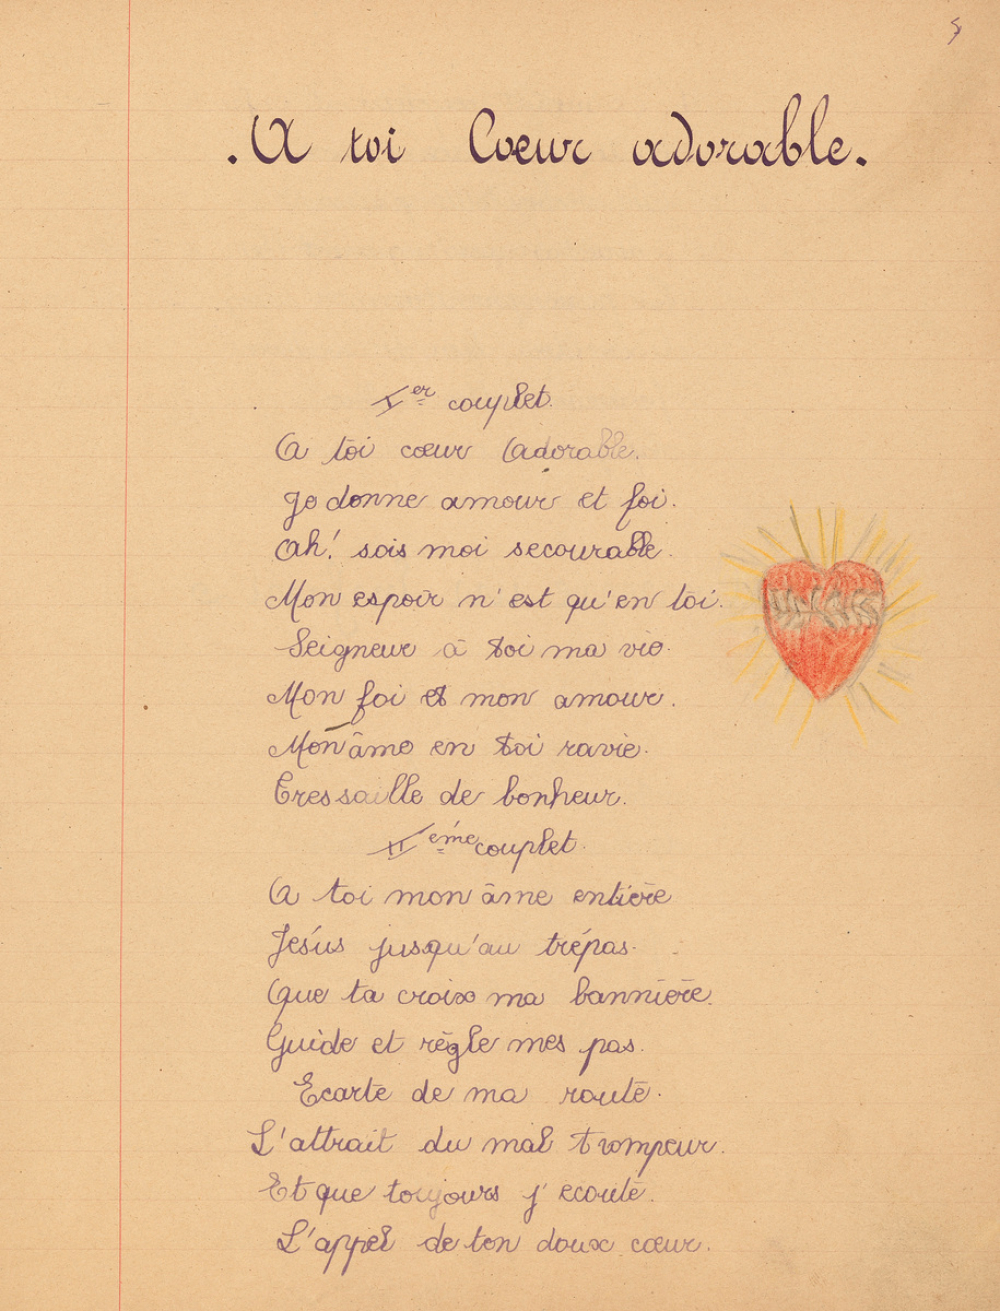 5
. A toi Coeur adorable.
Ier couplet.
A toi cœur Adorable.
Je donne amour et foi.
Ah! sois moi secourable.
Mon espoir n'est qu'en toi.
Seigneur à toi ma vie.
Mon foi et mon amour.
Mon âme en toi ravie.
Tressaille de bonheur.
IIème couplet.
A toi mon âme entière
Jésus jusqu'au trépas.
Que ta croix ma bannière.
Guide et règle mes pas.
Ecarte de ma route.
L'attrait du mal trompeur.
Et que toujours j'ecoute.
L'appel de ton doux cœur.